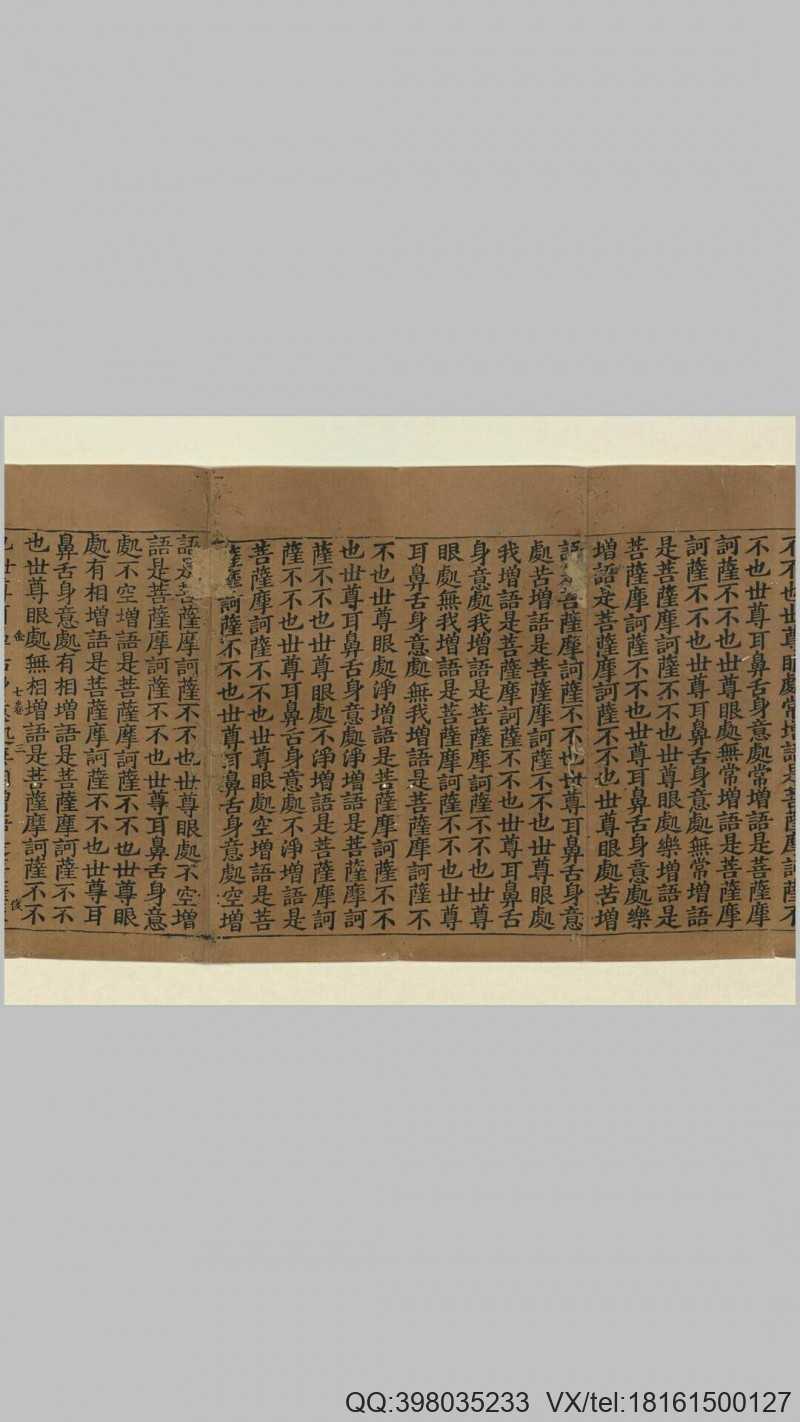 不也世尊眼處常增語是菩薩摩訶薩不
不也世尊耳鼻舌身意處常增語是菩薩摩
訶薩不不也世尊眼處無常增語是菩薩摩
訶薩不不也世尊耳鼻舌身意處無常增語
是菩薩摩訶薩不不也世尊眼處樂增語是
菩薩摩訶薩不不也世尊耳鼻舌身意處樂
增語是菩薩摩訶薩不不也世尊眼處苦增
語是菩薩摩訶薩不不也世尊耳鼻舌身意
處苦增語是菩薩摩訶薩不不也世尊眼處
我增語是菩薩摩訶薩不不也世尊耳鼻舌
身意處我增語是菩薩摩訶薩不不也世尊
眼處無我增語是菩薩摩訶薩不不也世尊
耳鼻舌身意處無我增語是菩薩摩訶薩不
不也世尊眼處淨增語是菩薩摩訶薩不不
也世尊耳鼻舌身意處淨增語是菩薩摩訶
薩不不也世尊眼處不淨增語是菩薩摩訶
薩不不也世尊耳鼻舌身意處不淨增語是
菩薩摩訶薩不不也世尊眼處空增語是菩
訶薩不不也世尊耳鼻舌身意處空增
語是菩薩摩訶薩不不也世尊眼處不空增
語是菩薩摩訶薩不不也世尊耳鼻舌身意
處不空增語是菩薩摩訶薩不不也世尊眼
處有相增語是菩薩摩訶薩不不也世尊耳
鼻舌身意處有相增語是菩薩摩訶薩不不
也世尊眼處無相增語是菩薩摩訶薩不不
七卷 三
QQ:398035233 VX/tel:18161500127